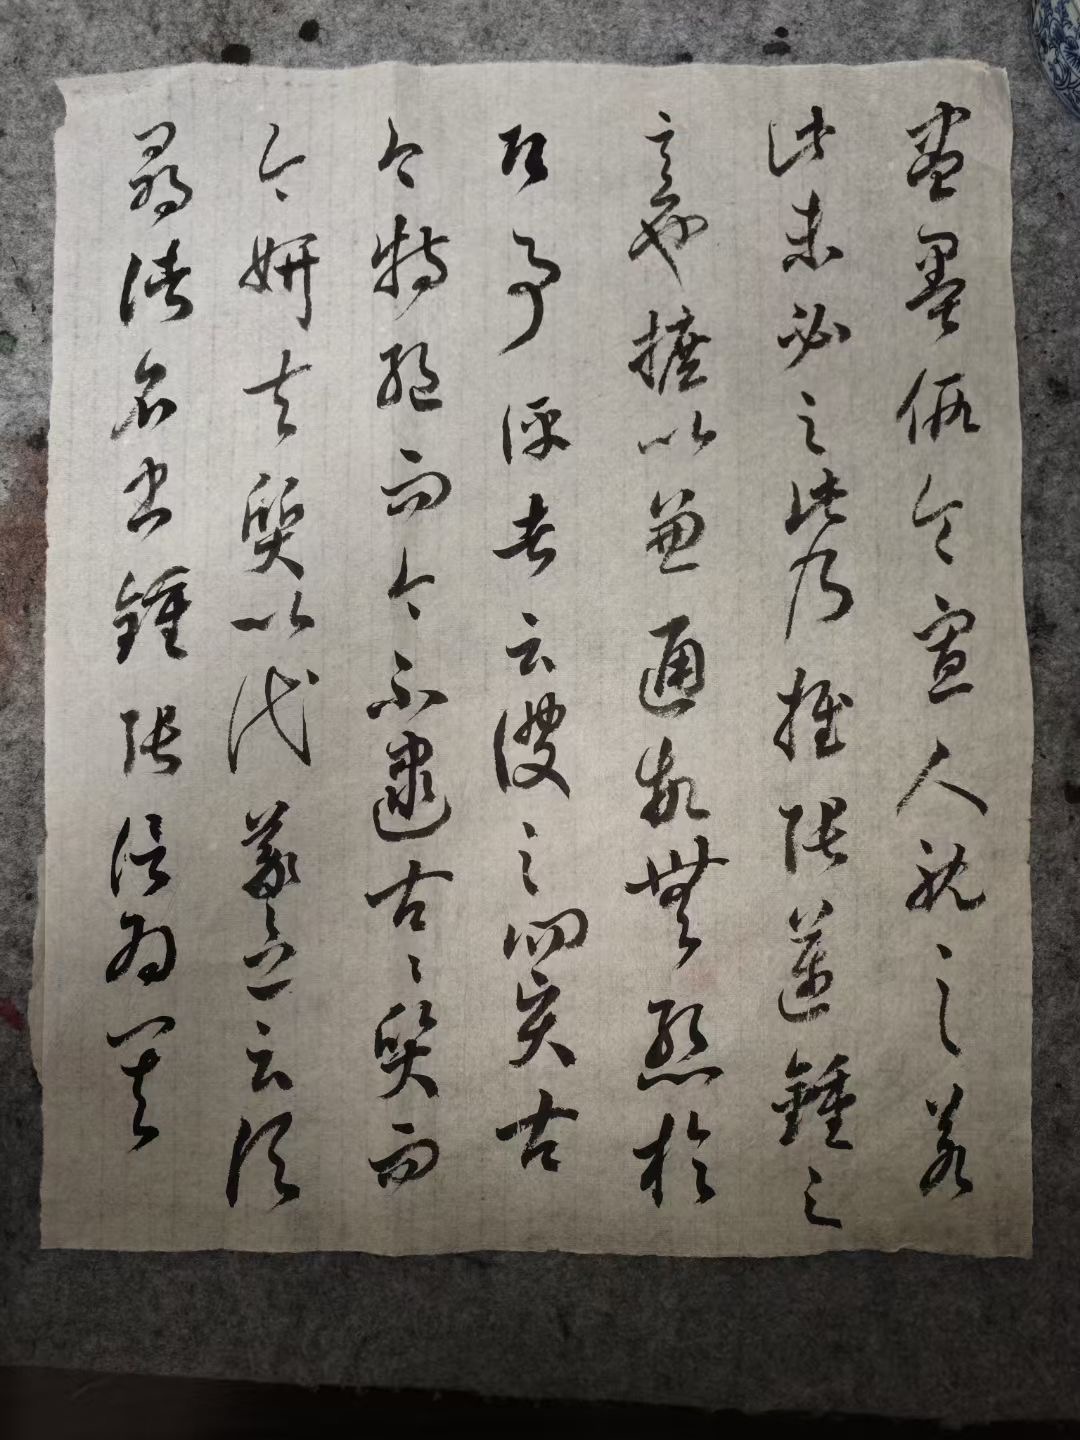 盡墨假令寡人耽之若
此未必之此乃推張邁鍾之
意也摭以兼通故無慙於
即事評者云彼之四賢古
今特絕而今不逮古〻質而
今妍夫質以代羲之云頃
尋諸名書鍾張信為